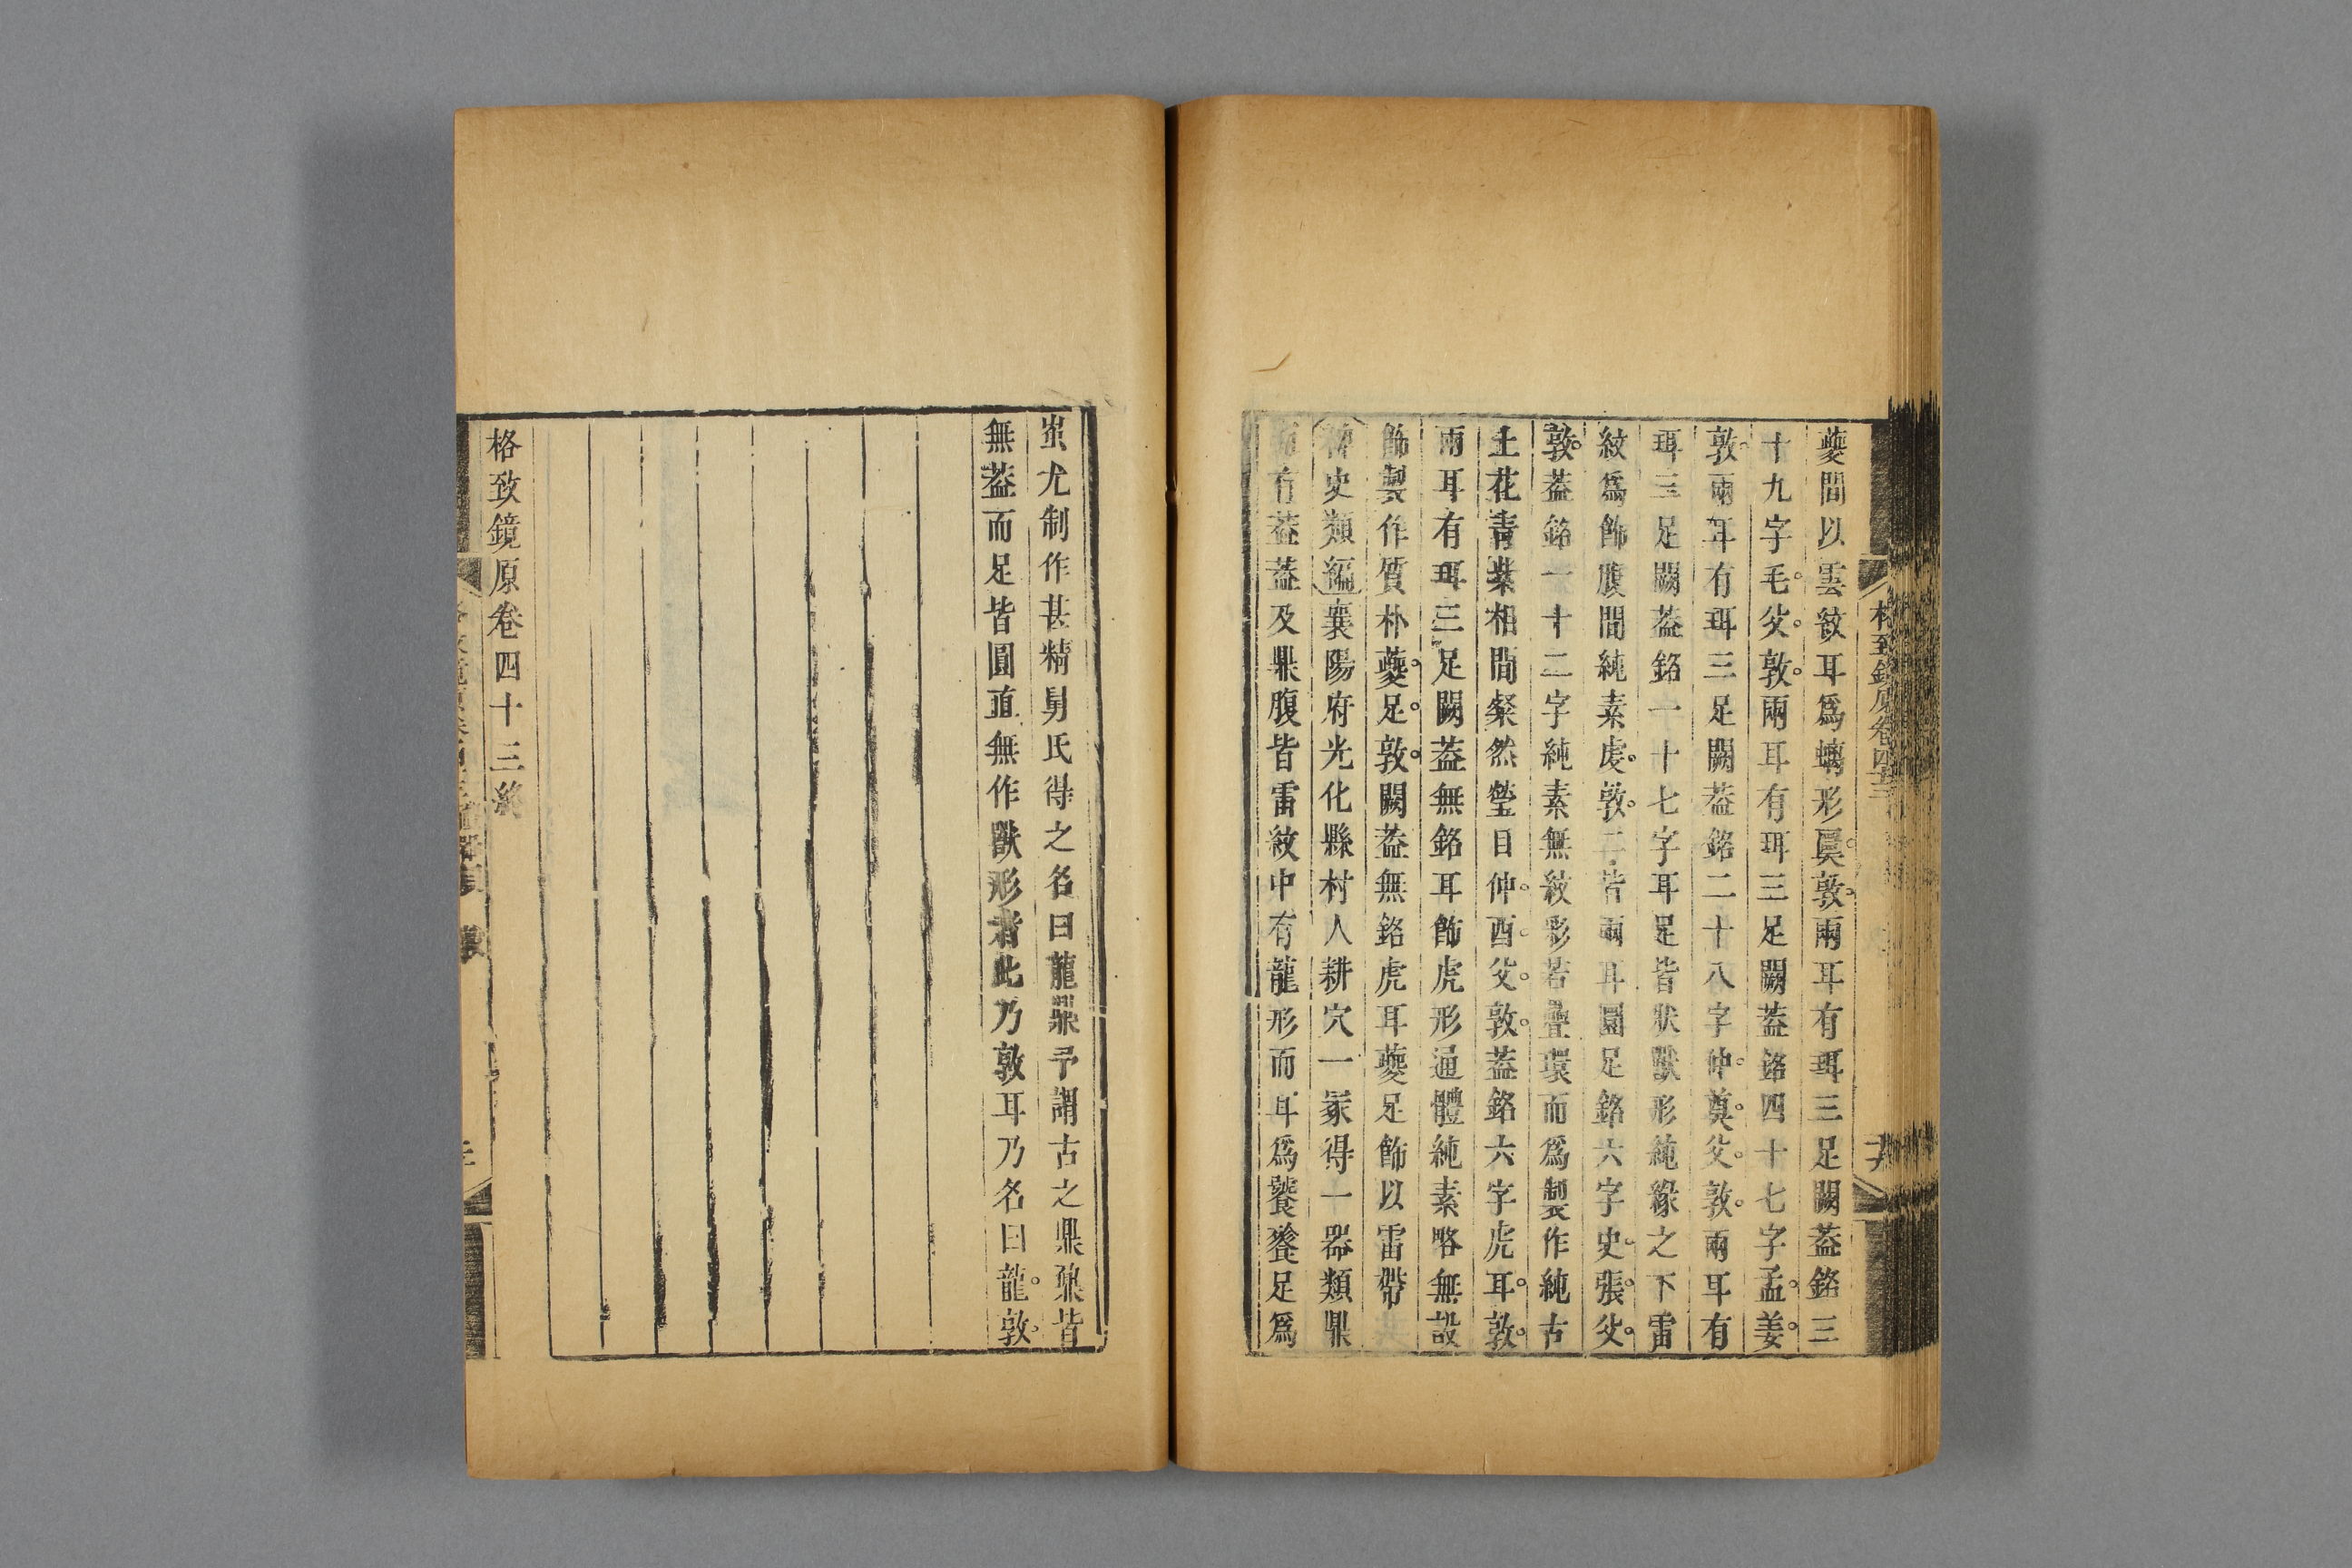 夔間以雲紋耳爲螭形㝬敦兩耳有珥三足闕葢銘三
十九字毛父敦兩耳有珥三足闕葢銘四十七字孟姜
敦兩耳有珥三足闕葢銘二十八字仲奠父敦兩耳有
珥三足闕葢銘一十七字耳足皆狀獸形純緣之下雷
紋爲飾腹間純素虔敦二皆兩耳圈足銘六字史張父
敦葢銘一十二字純素無紋彩若疊環而爲製作純古
土花青紫相間粲然瑩目仲酉父敦葢銘六字虎耳敦
兩耳有珥三足闕葢無銘耳飾虎形通體純素略無設
飾製作質朴夔足敦闕葢無銘虎耳夔足飾以雷帶
稗史類編襄陽府光化縣村人耕穴一冢得一器類鼎
而有葢葢及鼎腹皆雷紋中有龍形而耳爲饕餮足爲
蚩尤制作甚精舅氏得之名曰龍鼎予謂古之鼎鼐皆
無葢而足皆圓直無作獸形者此乃敦耳乃名曰龍敦
格致鏡原卷四十三終